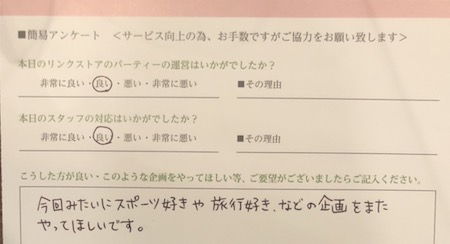 ■簡易アンケート ＜サービス向上の為、お手数ですがご協力をお願い致します＞
本日のリンクストアのパーティーの運営はいかがでしたか？
非常に良い・良い・悪い・非常に悪い ■その理由
本日のスタッフの対応はいかがでしたか？
非常に良い・良い・悪い・非常に悪い ■その理由
こうした方が良い・このような企画をやってほしい等、ご要望がございましたらご記入ください。
今回みたいにスポーツ好きや旅行好き、などの企画をまた
やってほしいです。